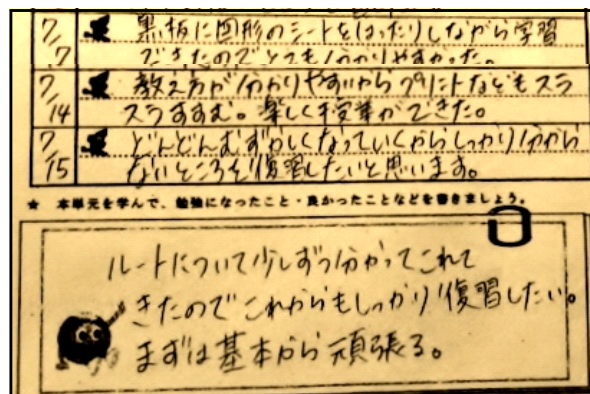 7/7 黒板に図形のシートをはったりしながら学習
できたのでとても分かりやすかった。
7/14 教え方が分かりやすいからプリントなどもスラ
スラすすむ。楽しく授業ができた。
7/15 どんどんむずかしくなっていくからしっかり分から
ないところを復習したいと思います。
★ 本単元を学んで、勉強になったこと・良かったことなどを書きましょう。
ルートについて少しずつ分かってこれて
きたのでこれからもしっかり復習したい。
まずは基本から頑張る。